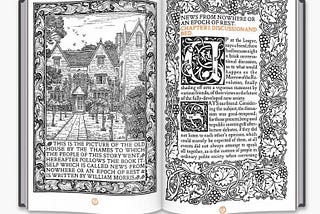 THIS IS THE PICTURE OF THE OLD
HOUSE BY THE THAMES TO WHICH
THE PEOPLE OF THIS STORY WENT
HEREAFTER FOLLOWS THE BOOK IT-
SELF WHICH IS CALLED NEWS FROM
NOWHERE OR AN EPOCH OF REST &
IS WRITTEN BY WILLIAM MORRIS
NEWS FROM NOWHERE OR
AN EPOCH OF REST.
CHAPTER I. DISCUSSION AND
BED.
Up at the League,
says a friend, there
had been one night
a brisk
conversational
discussion,
as to what
would
happen on the
Morrow of the Re-
volution, finally
shading off into a vigorous statement by
various friends, of their views on the future
of the fully-developed new society.
SAYS our friend: Consider-
ing the subject, the discus-
sion was good-tempered;
for those present, being used
to public meetings & after-
lecture debates, if they did
not listen to each other's opinions, which
could scarcely be expected of them, at all
events did not always attempt to speak
all together, as is the custom of people in
ordinary polite society when conversing